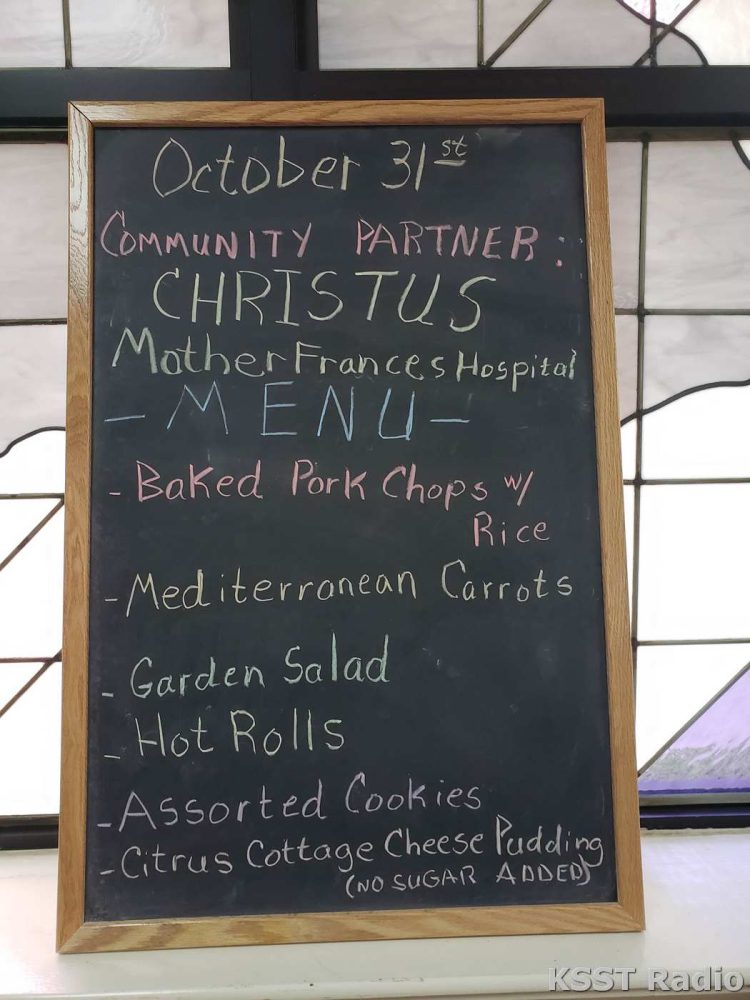 October 31st
COMMUNITY PARTNER:
CHRISTUS
Mother Frances Hospital
- MENU -
- Baked Pork Chops w/
Rice
- Mediterranean Carrots
- Garden Salad
- Hot Rolls
- Assorted Cookies
- Citrus Cottage Cheese Pudding
(NO SUGAR ADDED)
KSST Radio